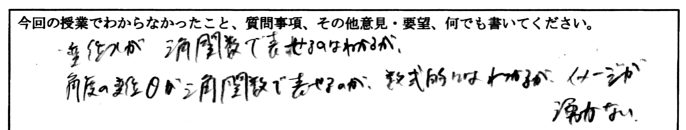 今回の授業でわからなかったこと、質問事項、その他意見・要望、何でも書いてください。
変位xが 三角関数で表せるのはわかるが、
角度の変位θが三角関数で表せるのが、数式的にはわかるが、イメージが
湧かない